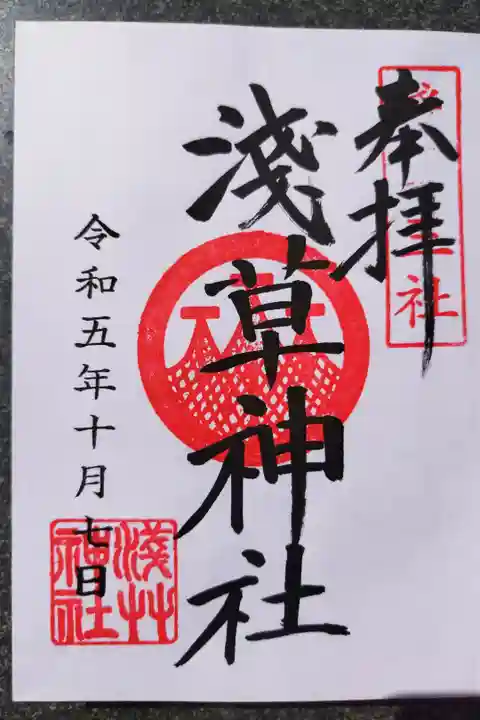 奉拝
淺草神社
令和五年十月七日
淺草
神社